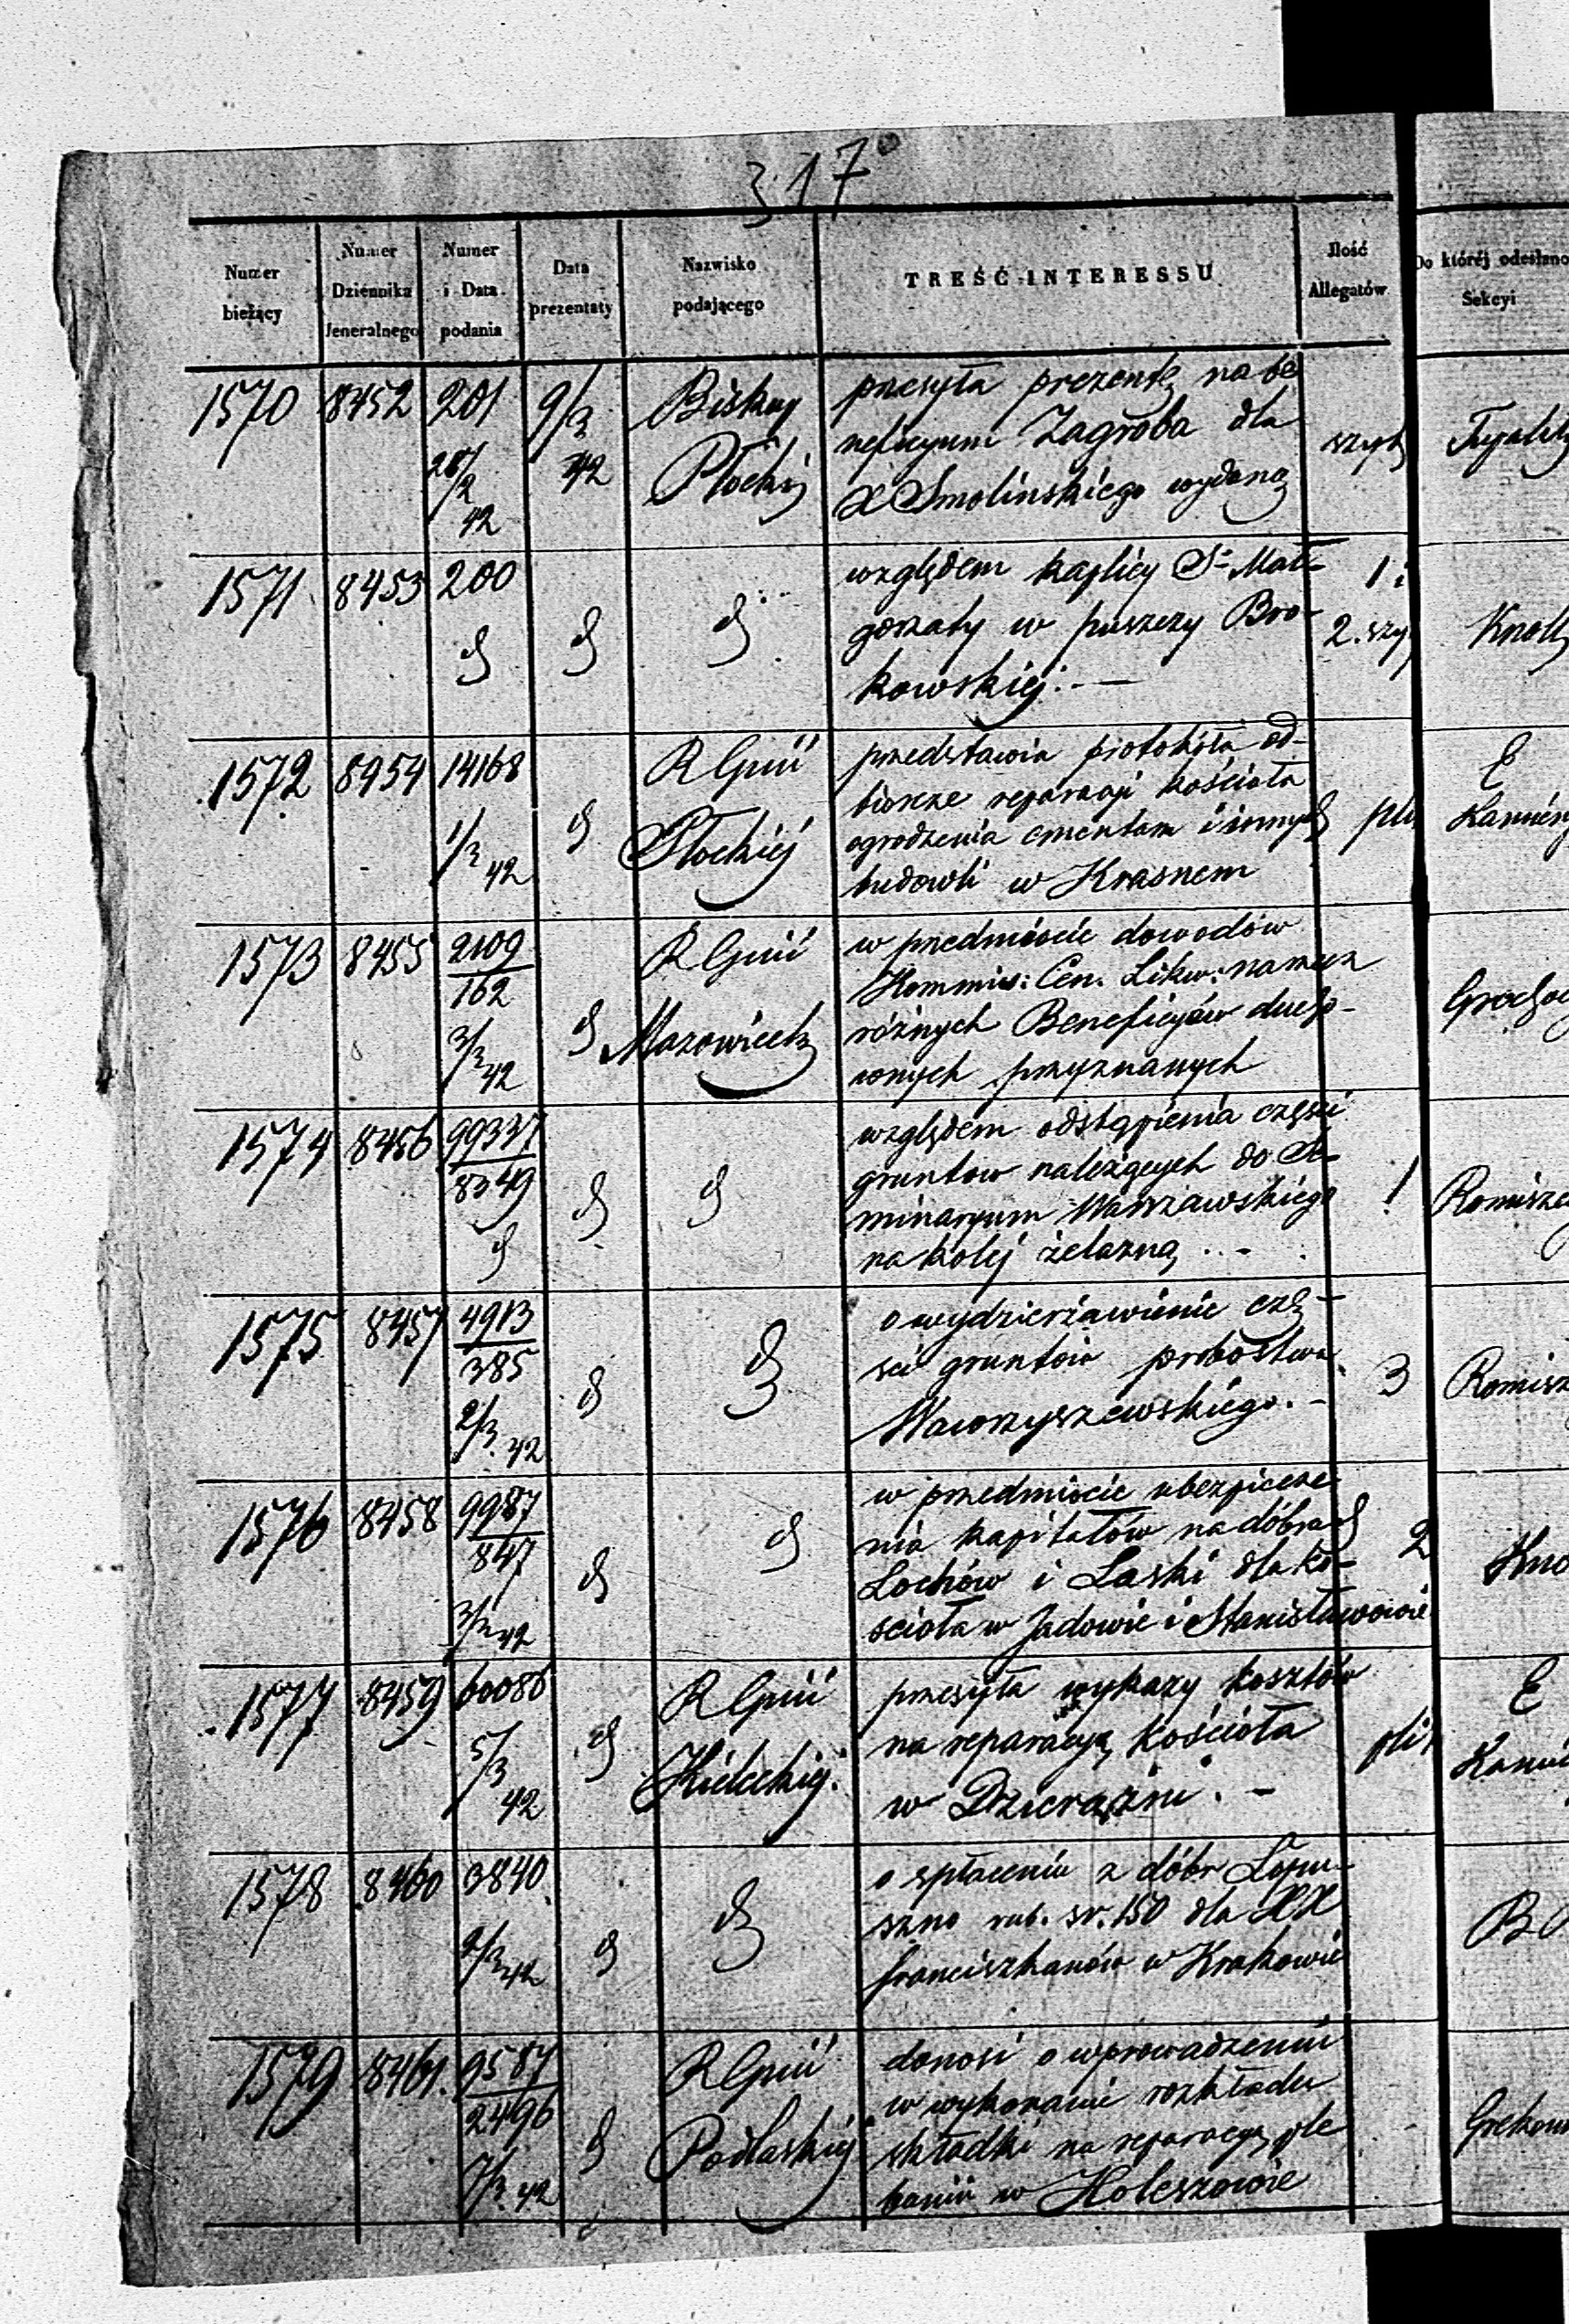 317
Numer
bieżący
Numer
Dziennika
Jeneralnego
Numer
i Data
podania
Data
prezentaty
Nazwisko
podającego
TREŚĆ INTERESSU
Ilość
Allegatów
Do któréj odesłano
Sekcyi
1570 8452 201 9/3 42 Biskup Płocki
przesyła prezentę na be
neficyum Zagroba dla
X Smolinskiego wydaną
1571 8453 200
względem kaplicy St Mał-
gorzaty w puszczy Bro-
kowskiej.—
1: 2. szy
Knoll
1572 8454 14168 1/3 42 R Gnii Płockiéj
przedstawia protokóła od-
biorcze reparacji kościoła
ogrodzenia cmentarza i innych
budowli w Krasnem
plik
E
1573 8455 2109 162 3/3 42 R Gnii Mazowiecki
w przedmiocie dowodów
Kommis: Cen. Likw: na rzecz
różnych Beneficyów ducho-
wnych przyznanych
1574 8456 99337 8349
względem odstąpienia części
gruntow należących do Se-
minaryum Warszawskiego
na kolej żelazną .. -
1
1575 8457 4913 385 2/3 42
o wydzierżawienie czę-
sci gruntów probostwa
Wawrzyszewskiego. -
3
1576 8458 9987 847 3/3 42
w przedmiocie ubezpiecze
nia kapitałów na dóbrach
Łochów i Laski dla ko-
ścioła w Jadowie i Stanisławowie
2
Kno
1577 8459 60086 5/3 42 R Gnii Kieleckiej.
przesyła wykazy kosztów
na reparacyą kościoła
w Dzierąźni. -
plik
E
1578 8460 3840 2/3 42
o spłaceniu z dóbr Łopu-
szno rub. sr. 150 dla XX
franciszkanów w Krakowie
1579 8461. 9587 2496 7/3. 42 R Gnii Podlaskiéj
donosi o wprowadzeniu
w wykonanie rozkładu
składki na reparacyą ple
banii w Holeszowie